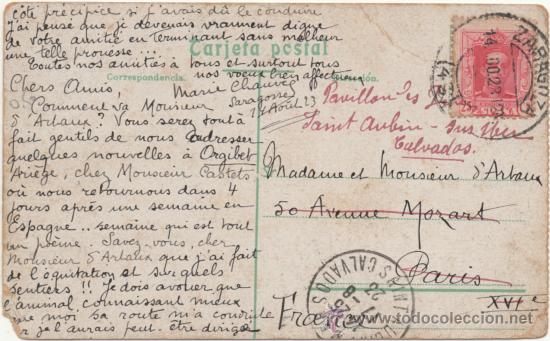 côté précipice si j'avais dû le conduire
j'ai pensé que je devenais vraiment digne
de votre amitié en terminant sans malheur
une telle prouesse ...
Toutes nos amitiés à tous et surtout tous
nos voeux bien affectueux
Marie
Saragosse
Août 23
Tarjeta postal
Correspondencia.
Chers Amis,
Comment va Monsieur
d'Arbaux? Vous seriez tout à
fait gentils de nous adresser
quelques nouvelles à Orgibet
Ariège, chez Monsieur Castets
où nous retournons dans 4
jours après une semaine en
Espagne .. semaine qui est tout
un poème. Savez-vous, cher
Monsieur d'Arbaux que j'ai fait
de l'équitation et sur quels
sentiers!! Je dois avouer que
l'animal connaissant mieux
que moi sa route m'a conduite
car je l'aurais peut-être dirigé
ZARAGOZA
Pavillon
Saint Aubin-sur Mer
Calvados.
Madame et Monsieur d'Arbaux
50 Avenue Mozart
Paris
XVIe
France
CALVADOS
todocoleccion.net